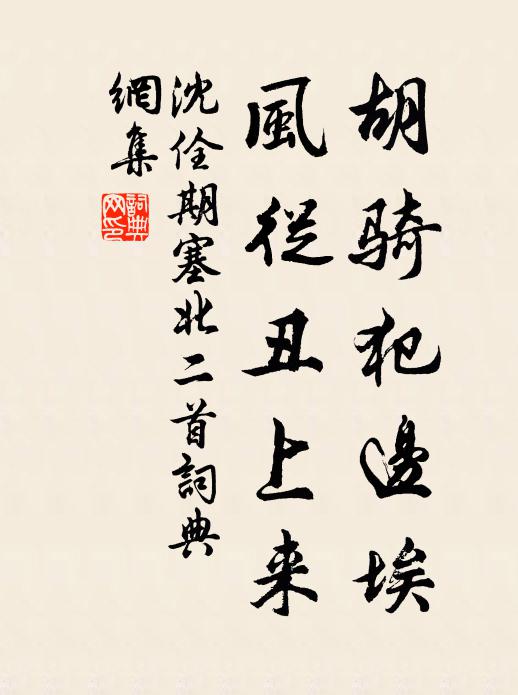 胡骑犯邊埃
風從丑上来
沈佺期塞北二首詞典
網集
詞典
网印